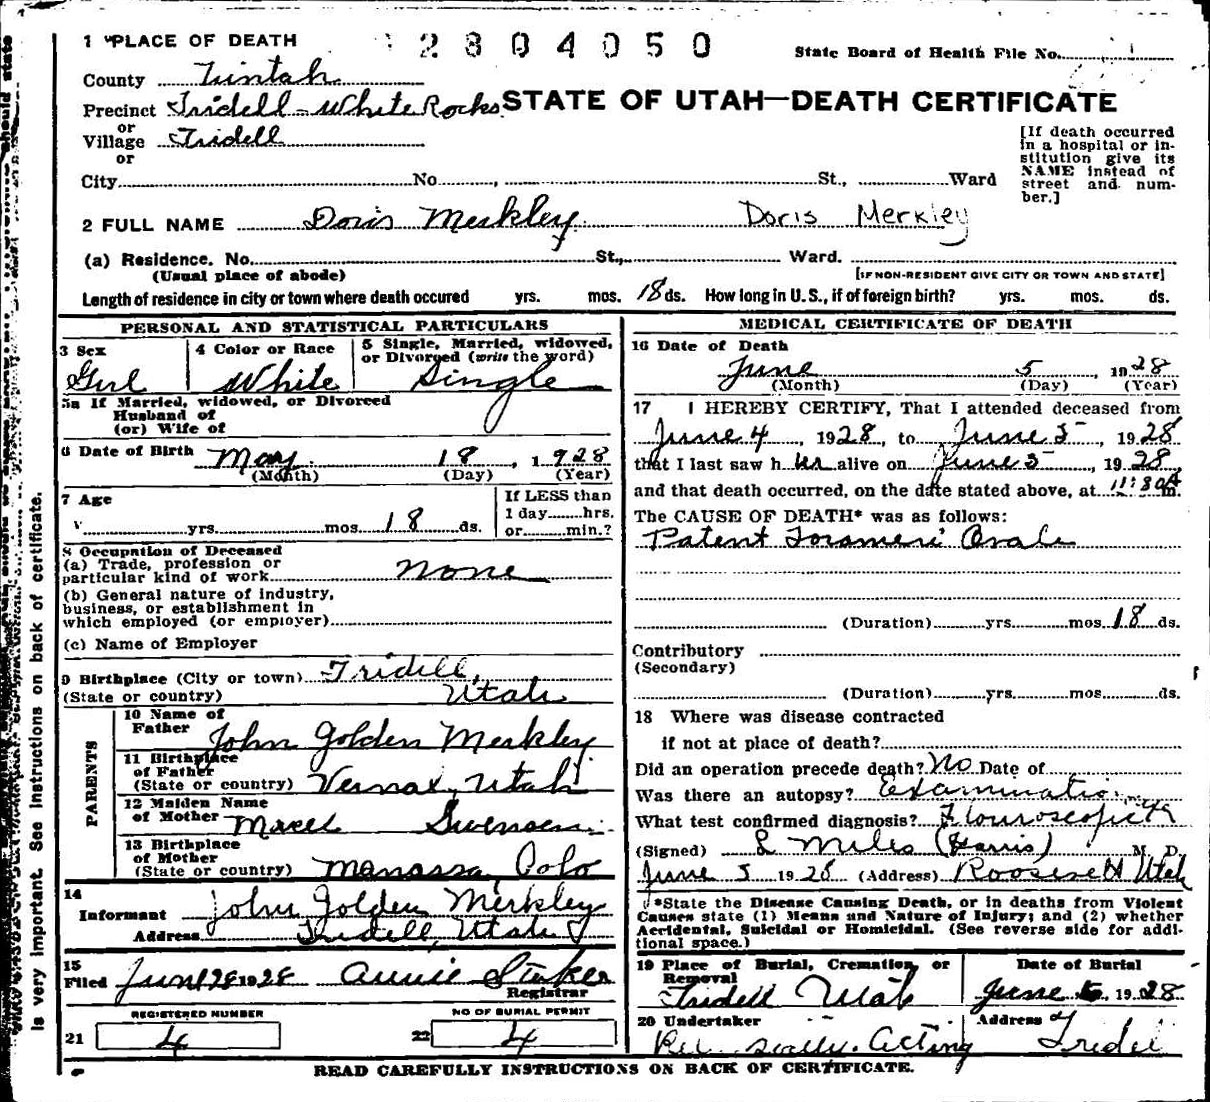 1 PLACE OF DEATH
2804050
State Board of Health File No.
County Uintah
Precinct Tridell - White Rocks
STATE OF UTAH—DEATH CERTIFICATE
or
Village Tridell
or
City No. , St., Ward
[If death occurred in a hospital or institution give its NAME instead of street and number.]
2 FULL NAME Doris Merkley Doris Merkley
(a) Residence. No. St., Ward.
(Usual place of abode) [IF NON-RESIDENT GIVE CITY OR TOWN AND STATE]
Length of residence in city or town where death occured yrs. mos. 18 ds. How long in U. S., if of foreign birth? yrs. mos. ds.
PERSONAL AND STATISTICAL PARTICULARS
3 Sex
Girl
4 Color or Race
White
5 Single, Married, widowed, or Divorced (write the word)
Single
5a If Married, widowed, or Divorced
Husband of
(or) Wife of
6 Date of Birth May 18, 1928
(Month) (Day) (Year)
7 Age
yrs. mos. 18 ds.
If LESS than
1 day hrs.
or min.?
8 Occupation of Deceased
(a) Trade, profession or
particular kind of work None
(b) General nature of industry,
business, or establishment in
which employed (or employer)
(c) Name of Employer
9 Birthplace (City or town) Tridell,
(State or country) Utah
PARENTS
10 Name of
Father John Golden Merkley
11 Birthplace
of Father
(State or country) Vernal, Utah
12 Maiden Name
of Mother Swensen
13 Birthplace
of Mother
(State or country) Manassa, Colo
14
Informant John Golden Merkley
Address Tridell, Utah
15
Filed June 28 1928 Annie
Registrar
REGISTERED NUMBER
21 4
NO OF BURIAL PERMIT
22 4
MEDICAL CERTIFICATE OF DEATH
16 Date of Death
June 5, 1928
(Month) (Day) (Year)
17 I HEREBY CERTIFY, That I attended deceased from
June 4, 1928, to June 5, 1928
that I last saw h er alive on June 5, 1928,
and that death occurred, on the date stated above, at 11:30 A m.
The CAUSE OF DEATH* was as follows:
Patent Foramen Ovale
(Duration) yrs. mos. 18 ds.
Contributory
(Secondary)
(Duration) yrs. mos. ds.
18 Where was disease contracted
if not at place of death?
Did an operation precede death? No Date of
Was there an autopsy? Examination
What test confirmed diagnosis?
(Signed) L Miles (Harris) M. D.
June 5 1928 (Address) Roosevelt Utah
*State the Disease Causing Death, or in deaths from Violent
Causes state (1) Means and Nature of Injury; and (2) whether
Accidental, Suicidal or Homicidal. (See reverse side for addi-
tional space.)
19 Place of Burial, Cremation, or
Removal
Tridell Utah
Date of Burial
June 6, 1928
20 Undertaker
Acting
Address
Tridel
READ CAREFULLY INSTRUCTIONS ON BACK OF CERTIFICATE.
should state
is very important. See instructions on back of certificate.